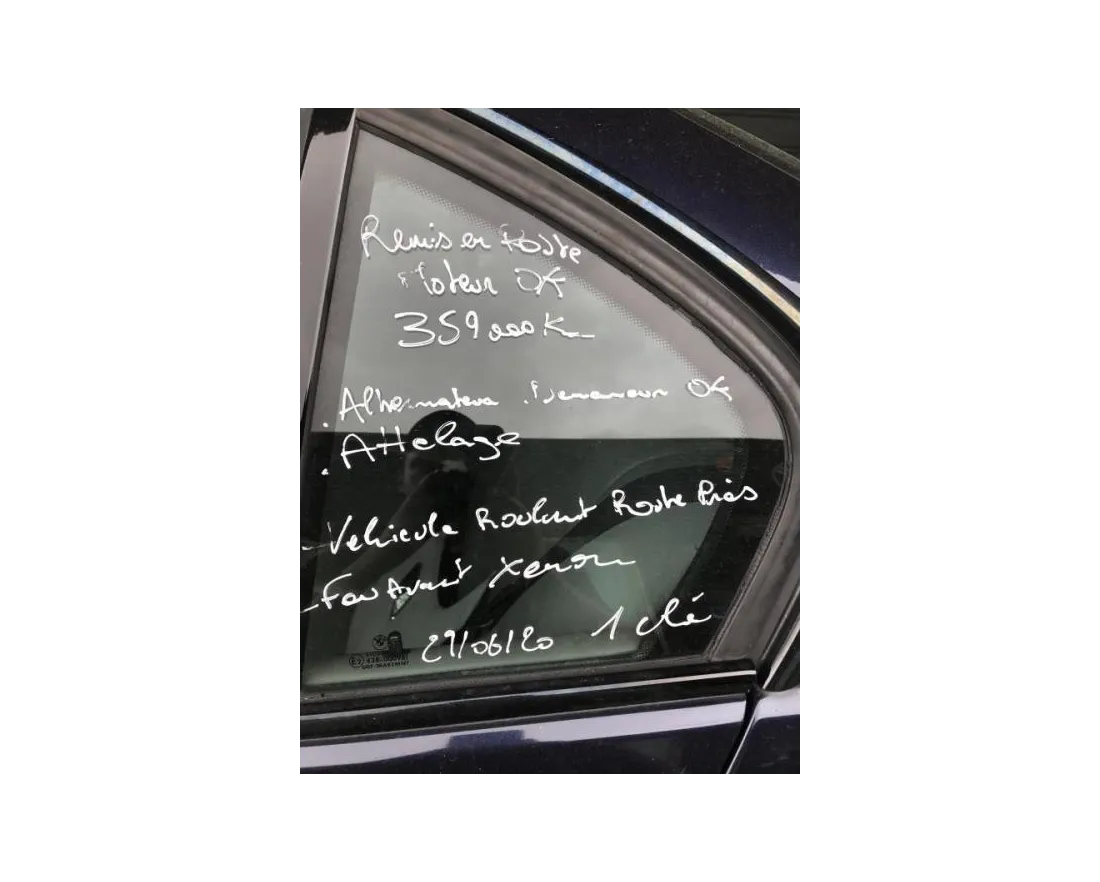 Remis en Route
Moteur OK
359 000 Km
. Alternateur . Demarreur OK
. Attelage
- Vehicule Roulant Route Près
- Feu Avant Xenon
29/06/20 1 clé